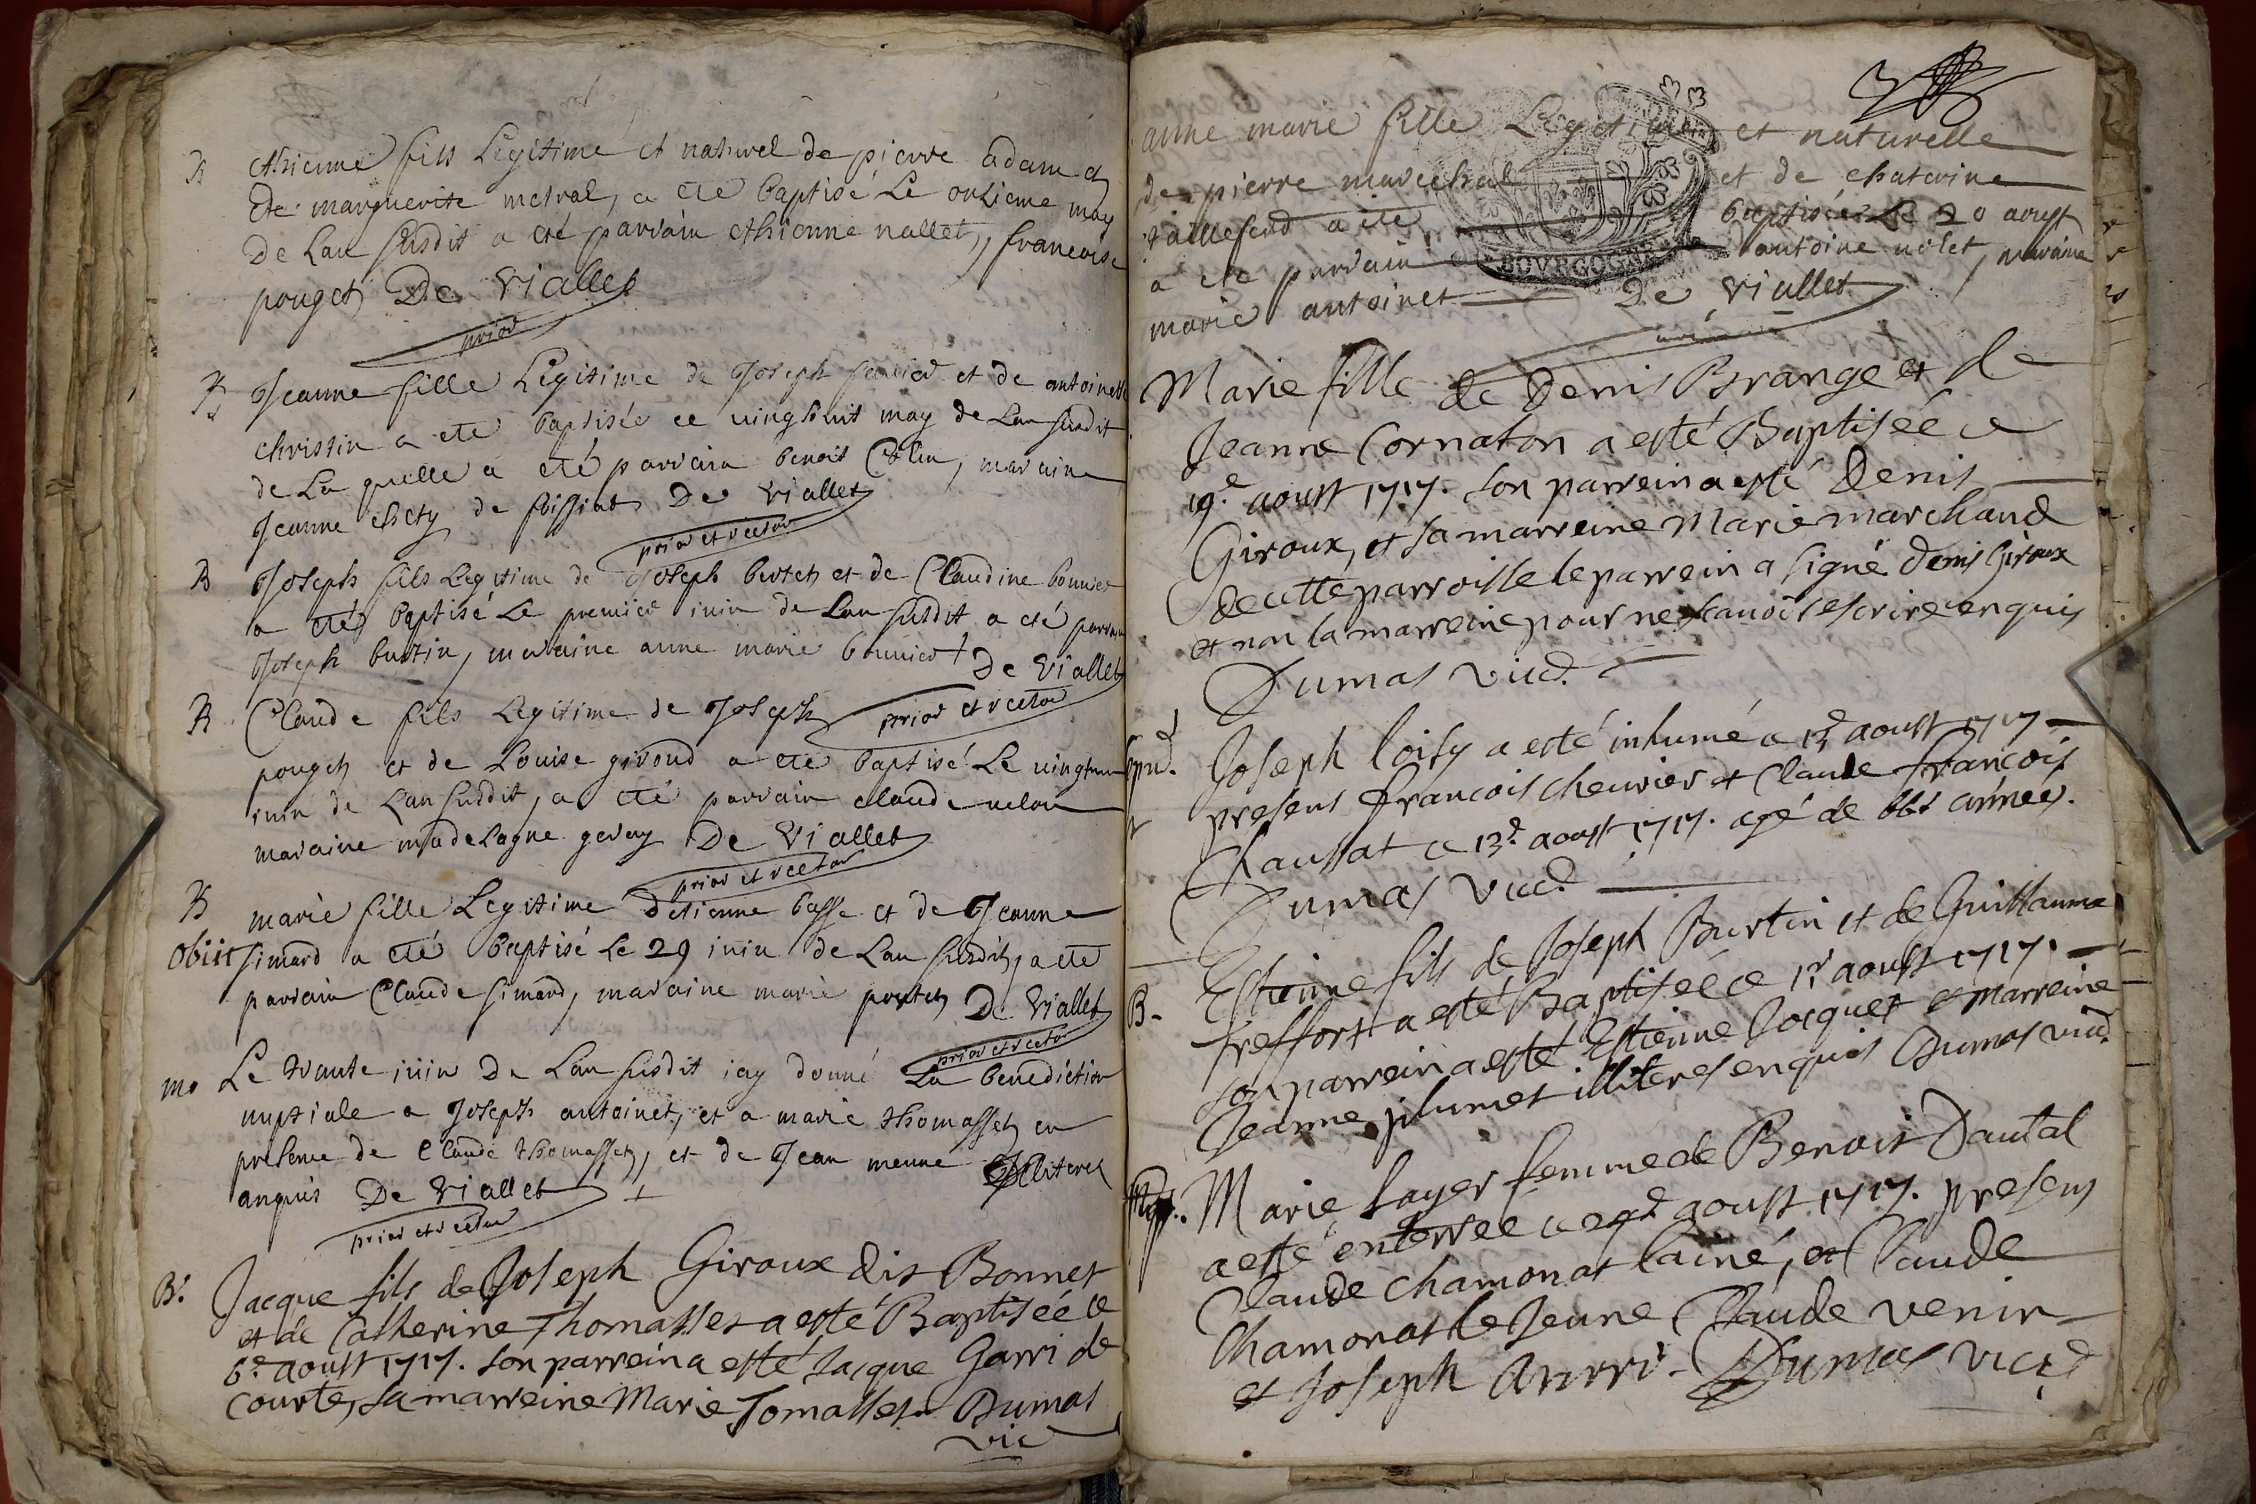 B ethienne fils Legitime et naturel de pierre adam et
De marguerite metral, a eté baptisé Le onzieme may
De Lan susdit a eté parrain ethienne nallet, francoise
pouget De Viallet
prior
B Jeanne fille Legitime de Joseph et de antoinette
christin a eté baptisée ce vingthuit may de Lan susdit
de La quelle a eté parrain benoit Colin, maraine
Jeanne chety de foissiat De Viallet
prior et rector
B Joseph fils Legitime de Joseph bertet et de Claudine bonnier
a eté baptisé Le premier iuin de Lan susdit a eté parrain
Joseph burtin, maraine anne marie bonnier De Viallet
prior et rector
B Claude fils Legitime de Joseph
pouget et de Louise giroud a eté baptisé Le
iuin de Lan susdit, a eté parrain claude
maraine madelagne De Viallet
prior et rector
B marie fille Legitime d'etienne basse et de Jeanne
obiit simard a eté baptisé Le 29 iuin de Lan susdit, a eté
parrain Claude simard, maraine marie De Viallet
prior et rector
mo Le trante iuin De Lan susdit iay donné La benediction
nuptiale a Joseph antoinet, et a marie thomasset en
presence de Claude thomasset, et de Jean illiteres
anquis De Viallet
prior et rector
B. Jacque fils de Joseph Giroux dit Bonnet
et de Catherine Thomasset a esté Baptisée ce
6e aoust 1717. son parrein a esté Jacque Garri de
courte, sa marreine Marie Tomasset Dumas
vic
anne marie fille Legitime et naturelle
de pierre marechal et de chaterine
taillefert a eté baptisée Le 20 aoust
a eté parrain antoine nolet, maraine
BOVRGOGNE
marie antoinet De Viallet
Marie fille de Denis Brange et de
Jeanne Cornaton a esté Baptisée ce
19e aoust 1717. son parrein a esté Denis
Giroux, et sa marreine Marie marchand
de cette parroisse le parrein a signé Denis Giroux
et non la marreine pour ne scavoir escrire enquis
Dumas vic.
Joseph Loisy a esté inhumé ce 13e aoust 1717
presens francois chevrier et Claude francois
Chaussat ce 13e aoust 1717. agé de années.
Dumas vic.
B. Estienne fils de Joseph Burtin et de Guillauma
treffort a esté Baptisée ce aoust 1717.
son parrein a esté Estienne Jocquet et marreine
Jeanne plumet illiteres enquis Dumas vic.
Marie Layer femme de Benoit Dautal
a esté enterrée ce aoust 1717. presens
Claude Chamonat lainé, et Claude
Chamonat le Jeune Claude venir
et Joseph Dumas vic.